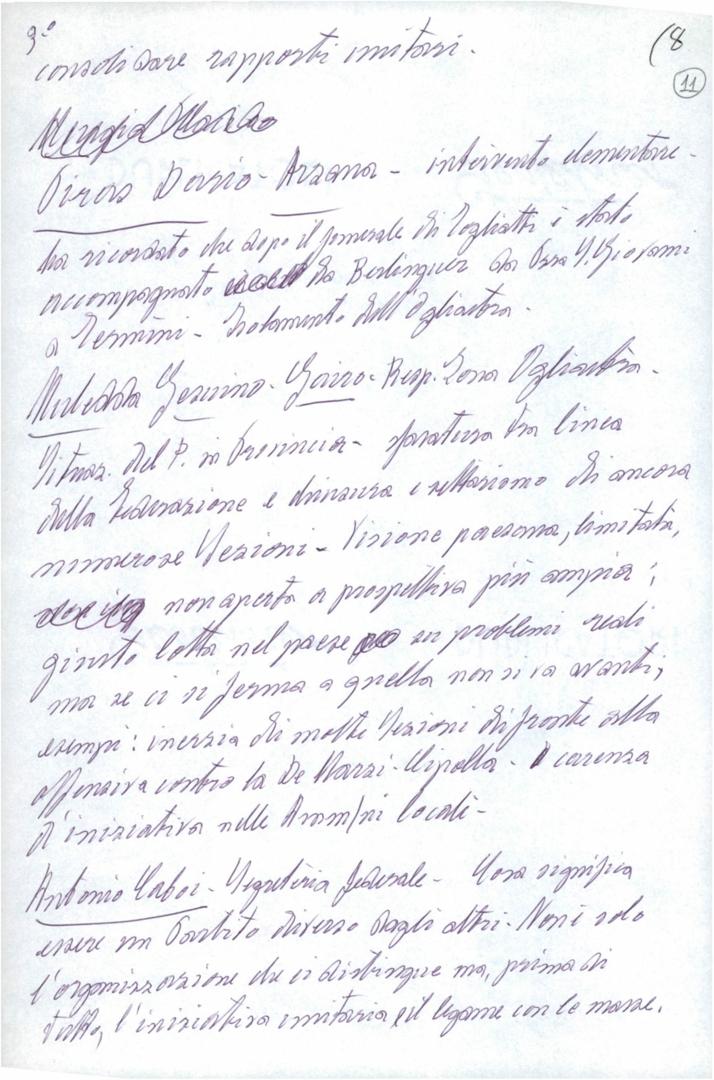 9°
(8
11
consolidare rapporti unitari.
Piras Dario - Arzana - intervento elementare -
ha ricordato che dopo il funerale di Togliatti è stato
accompagnato da Berlinguer da Pzza S. Giovanni
a Termini - Isolamento dell'Ogliastra.
Murledda Gesuino - Gairo - Resp. Zona Ogliastra -
Situaz. del P. in Provincia - sfasatura tra linea
della Federazione e chiusura e settarismo di ancora
numerose Sezioni - Visione paesana, limitata,
non aperta a prospettiva più ampia;
giusto lotta nel paese su problemi reali
ma se ci si ferma a quella non si va avanti,
esempi: inerzia di molte Sezioni di fronte alla
offensiva contro la De Marzi-Cipolla - carenza
d'iniziativa nelle Amm/ni locali -
Antonio Caboi - Segreteria federale - Cosa significa
essere un Partito diverso dagli altri. Non è solo
l'organizzazione che ci distingue ma, prima di
tutto, l'iniziativa unitaria e il legame con le masse.